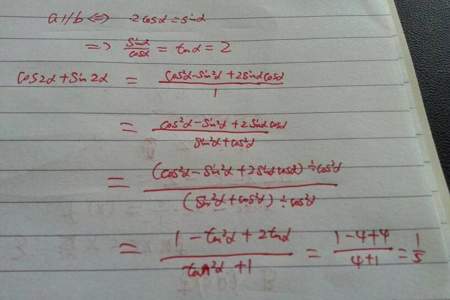 a//b ⇔ 2cosα=sinα
⇒ sinα/cosα = tanα = 2
cos2α+sin2α = (cos²α-sin²α+2sinαcosα)/1
= (cos²α-sin²α+2sinαcosα)/(sin²α+cos²α)
= ((cos²α-sin²α+2sinαcosα)÷cos²α)/((sin²α+cos²α)÷cos²α)
= (1-tan²α+2tanα)/(tan²α+1) = (1-4+4)/(4+1) = 1/5